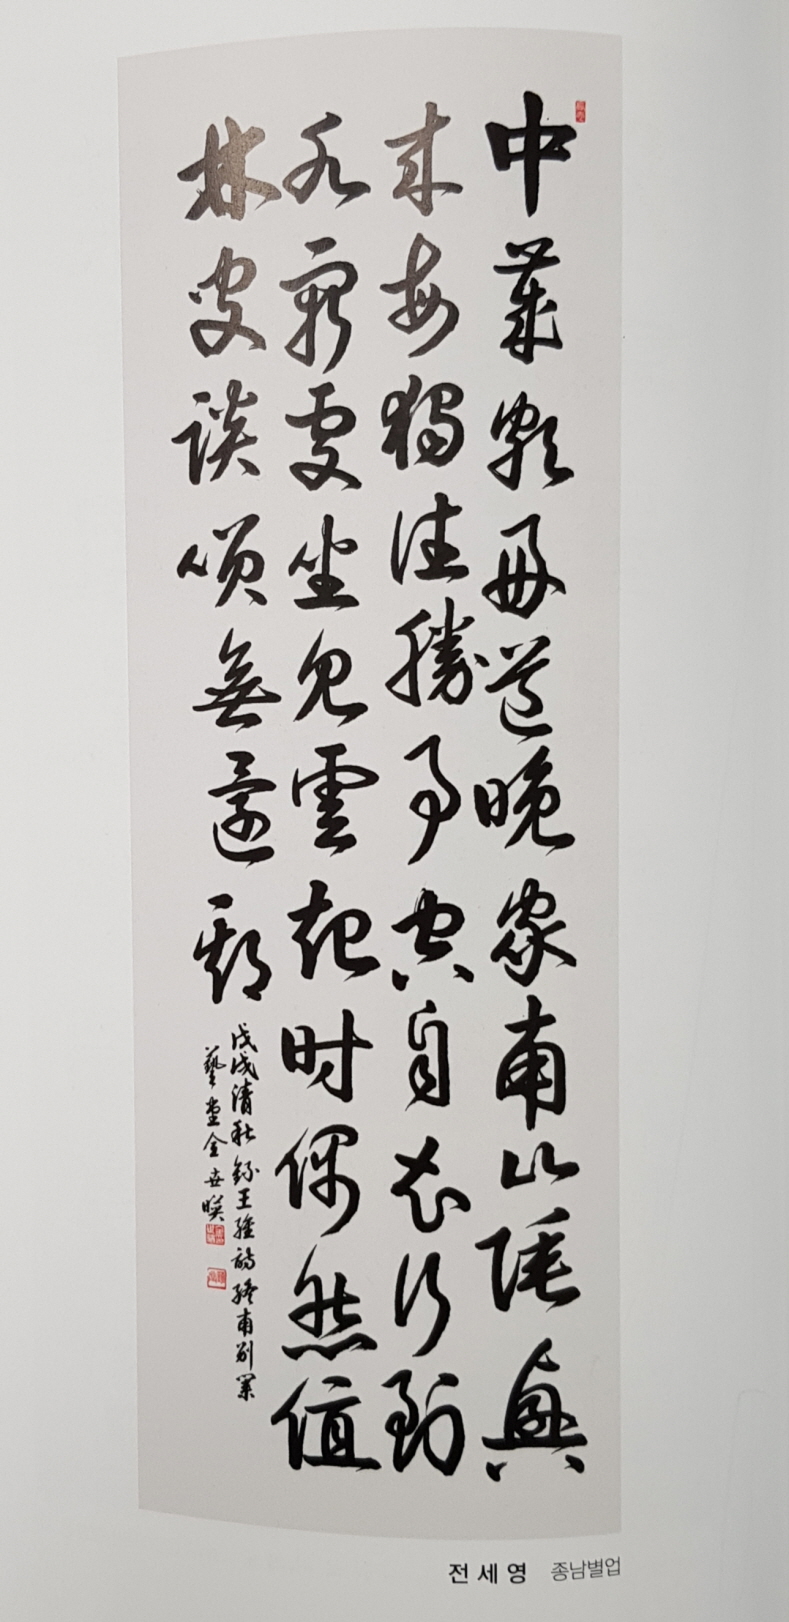 中歲頗好道晚家南山陲興
來每獨往勝事空自知行到
水窮處坐看雲起時偶然值
林叟談笑無還期
戊戌清秋錄王維詩終南別業
藝堂全世暎
전세영 종남별업